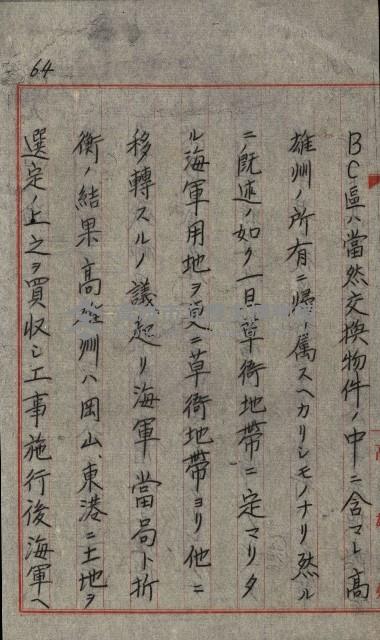 64
BC區ハ當然交換物件ノ中ニ含マレ高
雄州ノ所有ニ帰屬スヘカリシモノナリ然ル
ニ既述ノ如ク一旦草衙地帶ニ定マリタ
ル海軍用地ヲ更ニ草衙地帶ヨリ他ニ
移轉スルノ議起リ海軍當局ト折
衝ノ結果高雄州ハ岡山、東港ニ土地ヲ
選定ノ上之ヲ買収シ工事施行後海軍ヘ